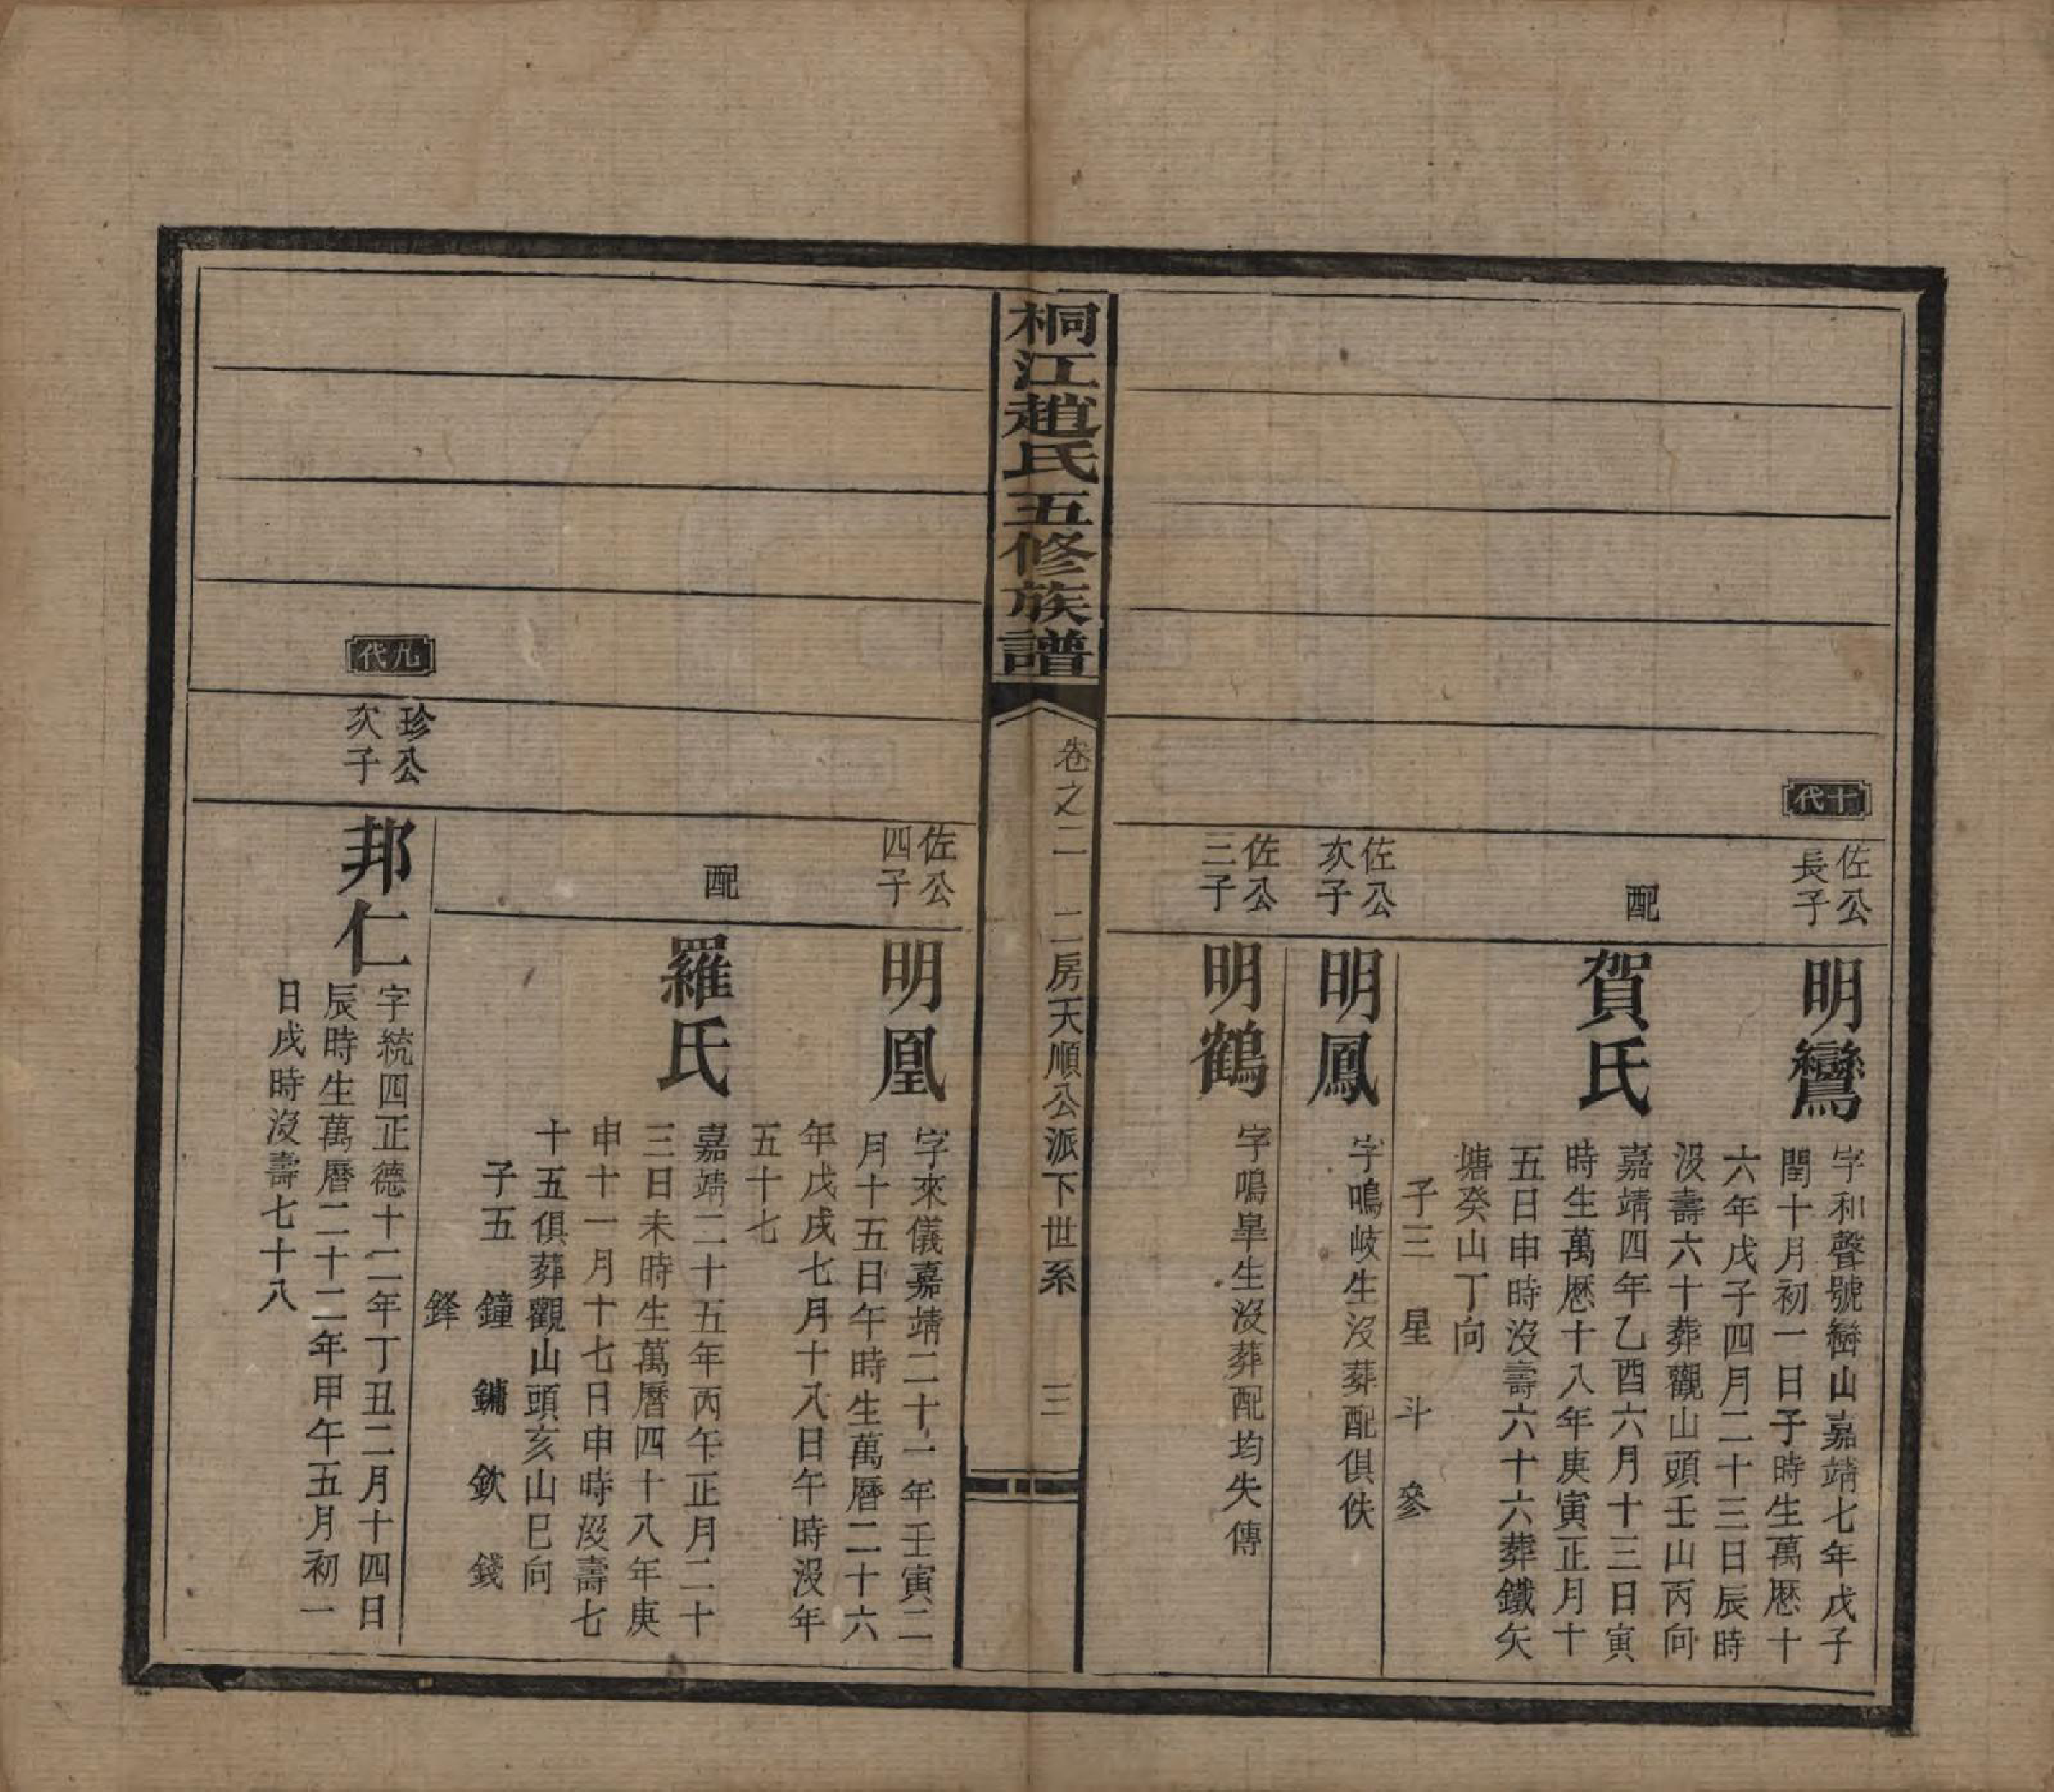 十代
佐公
長子
明鸞
字和聲號巒山嘉靖七年戊子
閏十月初一日子時生萬厯十
六年戊子四月二十三日辰時
沒壽六十葬觀山頭壬山丙向
配
賀氏
嘉靖四年乙酉六月十三日寅
時生萬厯十八年庚寅正月十
五日申時沒壽六十六葬鐵矢
塘癸山丁向
子三 星 斗 參
佐公
次子
明鳳
字鳴岐生沒葬配俱佚
佐公
三子
明鶴
字鳴皐生沒葬配均失傳
桐江趙氏五修族譜
卷之二 二房天順公派下世系 三
佐公
四子
明凰
字來儀嘉靖二十一年壬寅二
月十五日午時生萬曆二十六
年戊戌七月十八日午時沒年
五十七
配
羅氏
嘉靖二十五年丙午正月二十
三日未時生萬曆四十八年庚
申十一月十七日申時沒壽七
十五俱葬觀山頭亥山巳向
子五 鐘 鏞 欽 錢
鋒
九代
珍公
次子
邦仁
字統四正德十二年丁丑二月十四日
辰時生萬曆二十二年甲午五月初一
日戌時沒壽七十八